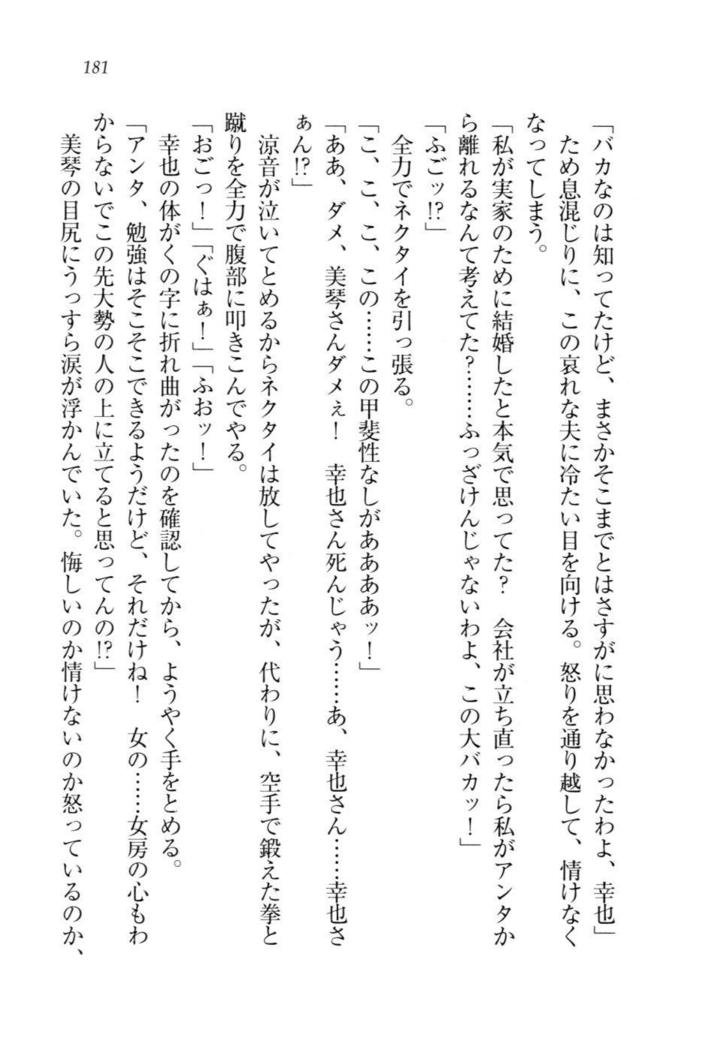 181
「バカなのは知ってたけど、まさかそこまでとはさすがに思わなかったわよ、幸也」
ため息混じりに、この哀れな夫に冷たい目を向ける。怒りを通り越して、情けなく
なってしまう。
「私が実家のために結婚したと本気で思ってた？　会社が立ち直ったら私がアンタか
ら離れるなんて考えてた？……ふっざけんじゃないわよ、この大バカッ！」
「ふごッ!?」
全力でネクタイを引っ張る。
「こ、こ、こ、この……この甲斐性なしがああああッ！」
「ああ、ダメ、美琴さんダメぇ！　幸也さん死んじゃう……あ、幸也さん……幸也さ
ぁん!?」
涼音が泣いてとめるからネクタイは放してやったが、代わりに、空手で鍛えた拳と
蹴りを全力で腹部に叩きこんでやる。
「おごっ！」「ぐはぁ！」「ふおッ！」
幸也の体がくの字に折れ曲がったのを確認してから、ようやく手をとめる。
「アンタ、勉強はそこそこできるようだけど、それだけね！　女の……女房の心もわ
からないでこの先大勢の人の上に立てると思ってんの!?」
美琴の目尻にうっすら涙が浮かんでいた。悔しいのか情けないのか怒っているのか、